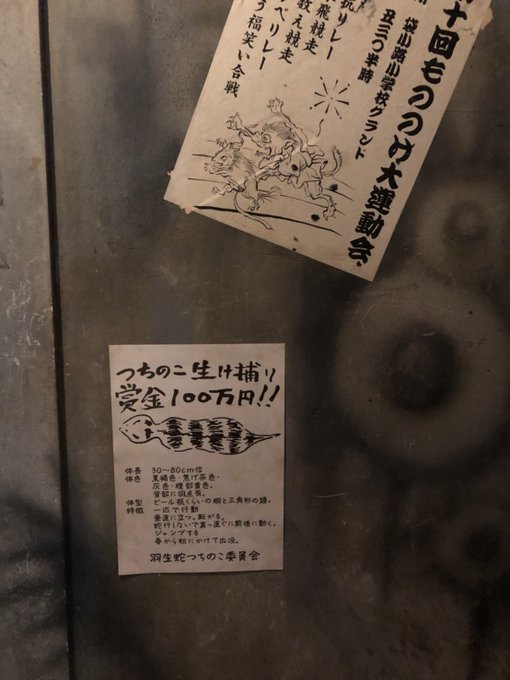 十回もののけ大運動会
袋小路小学校グランド
丑三つ半時
抗リレー
飛競走
教え競走
べりレー
う福笑い合戦
つちのこ生け捕り
賞金100万円!!
体長 30〜80cm位
体色 黒褐色・焦げ茶色・
灰色・腹部黄色。
背部に斑点有。
体型 ビール瓶くらいの胴と三角形の頭。
特徴 一匹で行動
垂直に立つ。転がる。
蛇行しないで真っ直ぐに前後に動く。
ジャンプする
春から秋にかけて出没。
羽生蛇つちのこ委員会